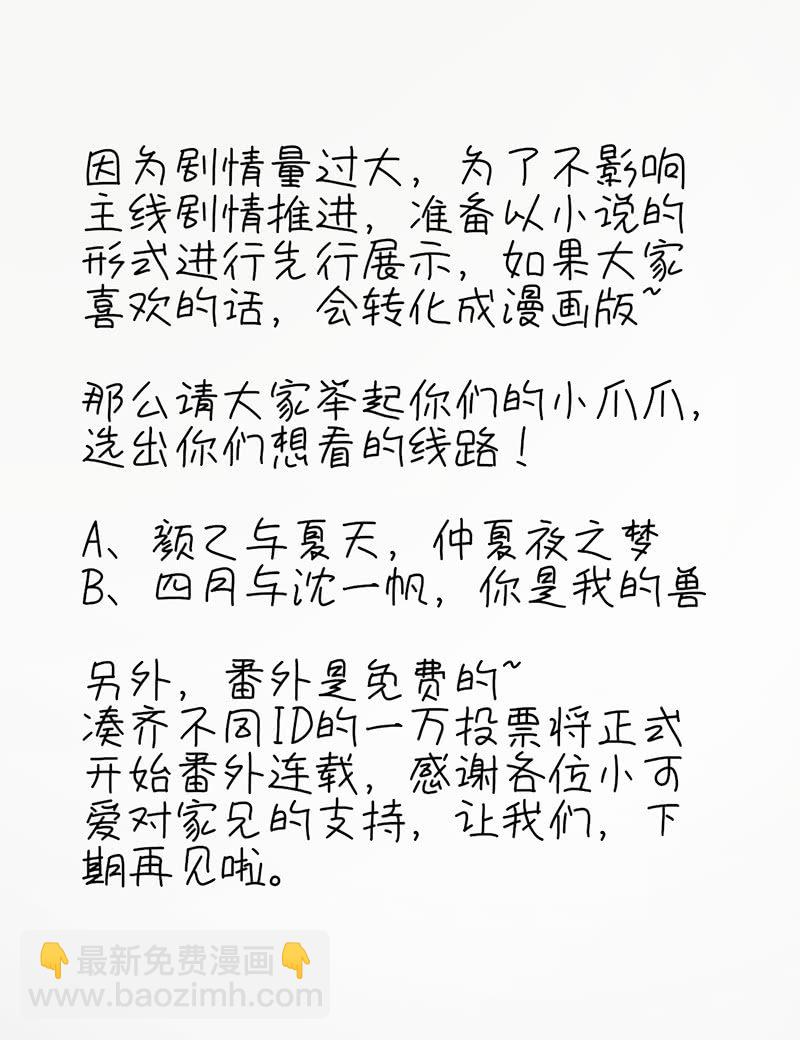 因为剧情量过大，为了不影响
主线剧情推进，准备以小说的
形式进行先行展示，如果大家
喜欢的话，会转化成漫画版~
那么请大家举起你们的小爪爪，
选出你们想看的线路！
A、颜乙与夏天，仲夏夜之梦
B、四月与沈一帆，你是我的兽
另外，番外是免费的~
凑齐不同ID的一万投票将正式
开始番外连载，感谢各位小可
爱对家兄的支持，让我们，下
期再见啦。
👇最新免费漫画👇
www.baozimh.com